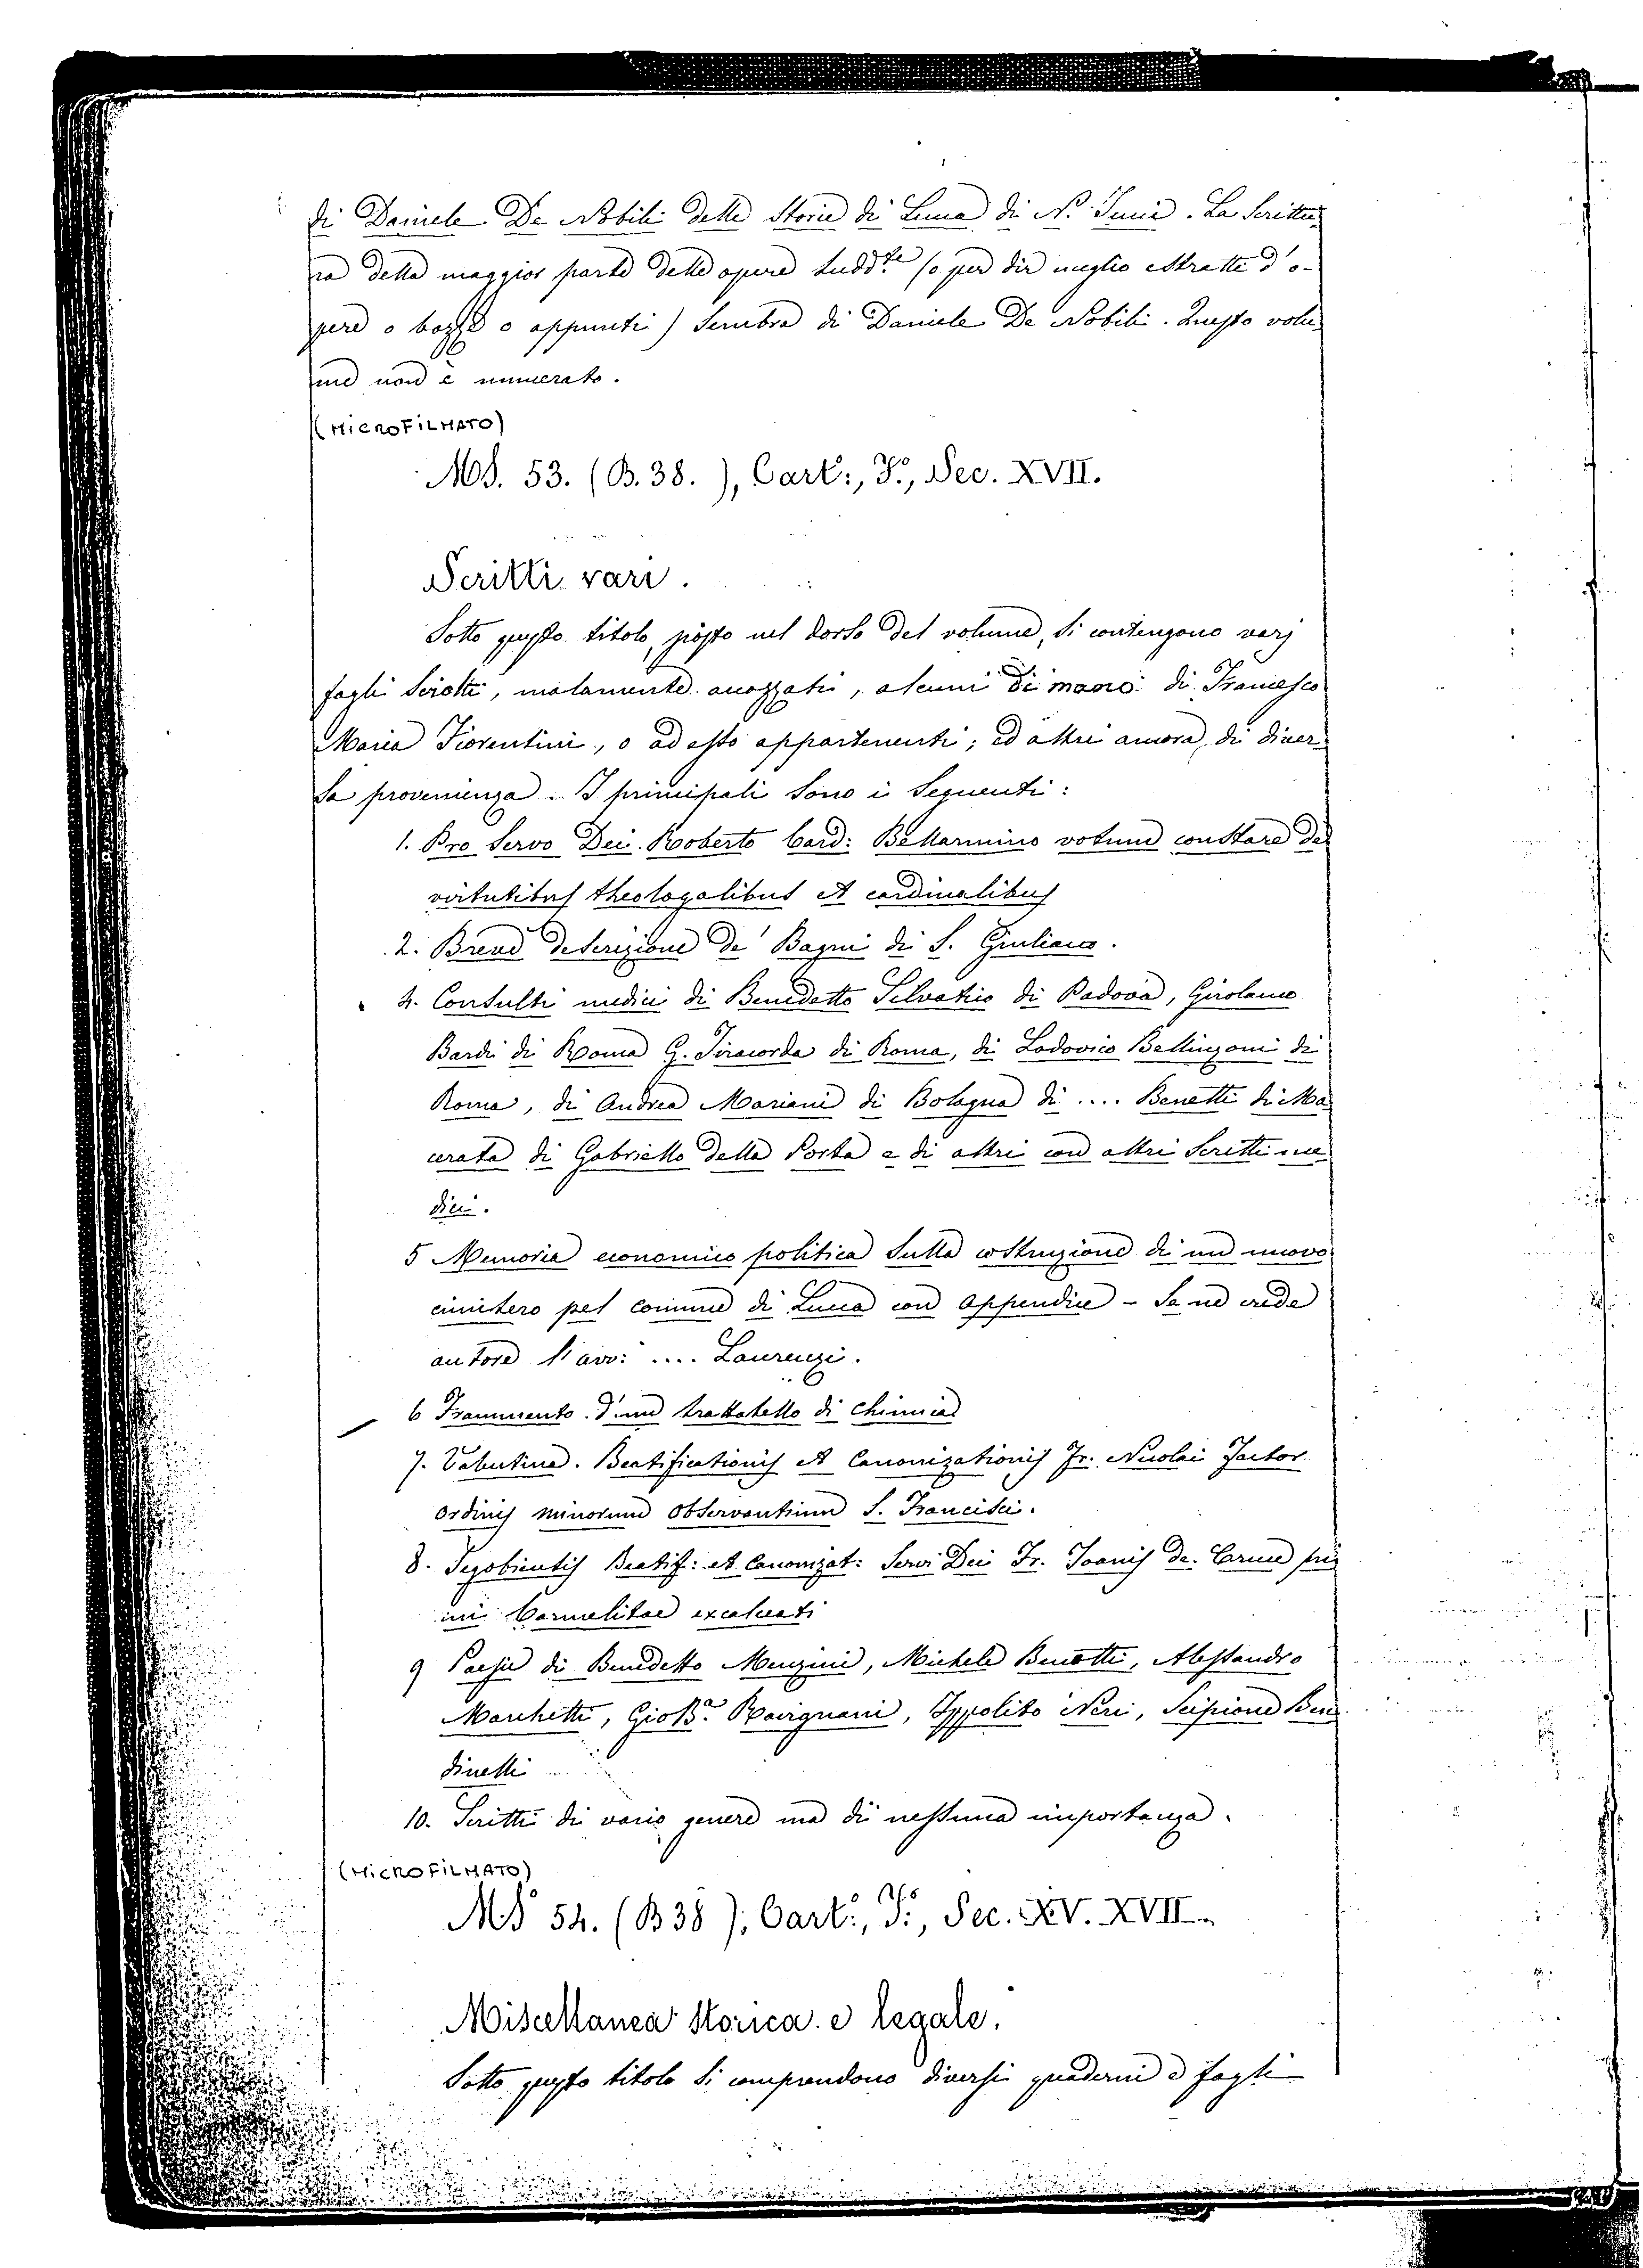 di Daniele De Nobili delle Storie di Lucca di N. Tucci. La Scrittu-
ra della maggior parte delle opere sudd.te (o per dir meglio estratti d'o-
pere o bozze o appunti) sembra di Daniele De Nobili. Questo volu-
me non è numerato.
(MICROFILMATO)
MS. 53. (B. 38.), Cart:, F.o, Sec. XVII.
Scritti vari.
Sotto questo titolo, posto nel dorso del volume, si contengono varj
fogli sciolti, malamente accozzati, alcuni di mano di Francesco
Maria Fiorentini, o ad esso appartenenti; ed altri ancora, di diver-
sa provenienza. I principali sono i seguenti:
1. Pro Servo Dei Roberto Card: Bellarmino votum constare de
virtutibus theologalibus et cardinalibus
2. Breve descrizione de' Bagni di S. Giuliano.
4. Consulti medici di Benedetto Selvatico di Padova, Girolamo
Bardi di Roma G. Tiracorda di Roma, di Lodovico Bellinzoni di
Roma, di Andrea Mariani di Bologna di .... Benetti di Ma
cerata di Gabriello della Porta e di altri con altri scritti me
dici.
5 Memoria economico politica sulla costruzione di un nuovo
cimitero pel comune di Lucca con appendice - Se ne crede
autore l'avv: .... Laurenzi.
6 Frammento d'un trattatello di chimica
7. Valentina. Beatificationis et Canonizationis Fr. Nicolai Factor
ordinis minorum observantium S. Francisci.
8. Segobientis Beatif: et Canonizat: Servi Dei Fr. Joanis de
mi Carmelitae excalceati
9 Poesie di Benedetto Menzini, Michele Benotti, Alessandro
Marchetti, Gio B.a Ravignani, Ippolito Neri, Scipione Ben
dinelli
10. Scritti di vario genere ma di nessuna importanza.
(MICROFILMATO)
MS 54. (B 38), Cart:, F.o, Sec. XV. XVII.
Miscellanea storica e legale.
Sotto questo titolo si comprendono diversi quaderni e fogli